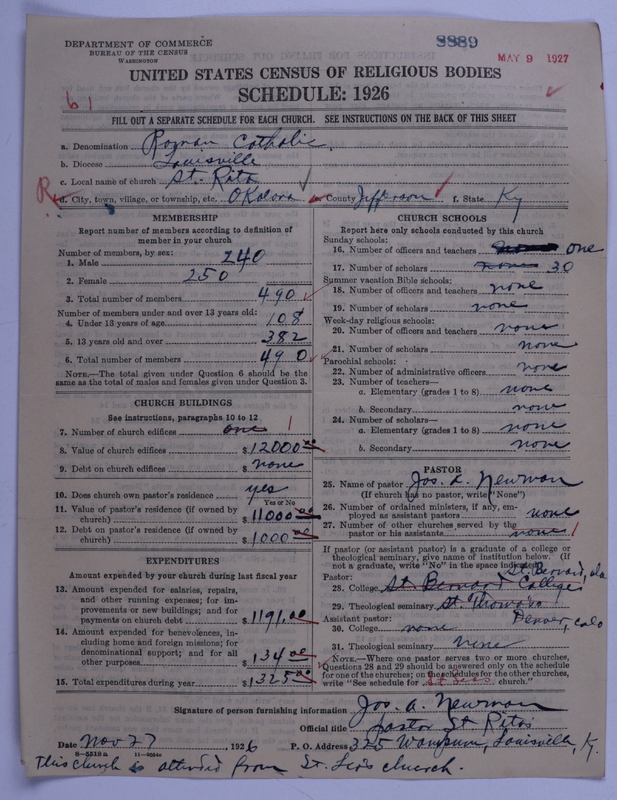 DEPARTMENT OF COMMERCE
BUREAU OF THE CENSUS
WASHINGTON
8889
MAY 9 1927
UNITED STATES CENSUS OF RELIGIOUS BODIES
SCHEDULE: 1926
61
FILL OUT A SEPARATE SCHEDULE FOR EACH CHURCH. SEE INSTRUCTIONS ON THE BACK OF THIS SHEET
a. Denomination Roman Catholic
b. Diocese Louisville
c. Local name of church St. Rita
R d. City, town, village, or township, etc. Okolona e. County Jefferson f. State Ky
MEMBERSHIP
Report number of members according to definition of
member in your church
Number of members, by sex:
1. Male 240
2. Female 250
3. Total number of members 490
Number of members under and over 13 years old:
4. Under 13 years of age 108
5. 13 years old and over 382
6. Total number of members 490
NOTE.—The total given under Question 6 should be the
same as the total of males and females given under Question 3.
CHURCH BUILDINGS
See instructions, paragraphs 10 to 12
7. Number of church edifices one 1
8. Value of church edifices $12000.00
9. Debt on church edifices $none
10. Does church own pastor's residence yes
Yes or No
11. Value of pastor's residence (if owned by
church) $11000.00
12. Debt on pastor's residence (if owned by
church) $1000.00
EXPENDITURES
Amount expended by your church during last fiscal year
13. Amount expended for salaries, repairs,
and other running expenses; for im-
provements or new buildings; and for
payments on church debt $1191.00
14. Amount expended for benevolences, in-
cluding home and foreign missions; for
denominational support; and for all
other purposes $134.00
15. Total expenditures during year $1325.00
CHURCH SCHOOLS
Report here only schools conducted by this church
Sunday schools:
16. Number of officers and teachers none one
17. Number of scholars none 30
Summer vacation Bible schools:
18. Number of officers and teachers none
19. Number of scholars none
Week-day religious schools:
20. Number of officers and teachers none
21. Number of scholars none
Parochial schools:
22. Number of administrative officers none
23. Number of teachers—
a. Elementary (grades 1 to 8) none
b. Secondary none
24. Number of scholars—
a. Elementary (grades 1 to 8) none
b. Secondary none
PASTOR
25. Name of pastor Jos. A. Newman
(If church has no pastor, write "None")
26. Number of ordained ministers, if any, em-
ployed as assistant pastors none
27. Number of other churches served by the
pastor or his assistants none 1
If pastor (or assistant pastor) is a graduate of a college or
theological seminary, give name of institution below. (If
not a graduate, write "No" in the space indicated)
Pastor: St. Bernard, Ala
28. College St. Bernard College
29. Theological seminary St. Thomas
Assistant pastor: Denver, Colo
30. College none
31. Theological seminary none
NOTE.—Where one pastor serves two or more churches,
Questions 28 and 29 should be answered only on the schedule
for one of the churches; on the schedules for the other churches,
write "See schedule for St Leo's church."
Signature of person furnishing information Jos. A. Newman
Official title Pastor St Rita's
Date Nov 27, 1926 P. O. Address 325 Wampum, Louisville, Ky.
This church is attended from St. Leo's church.